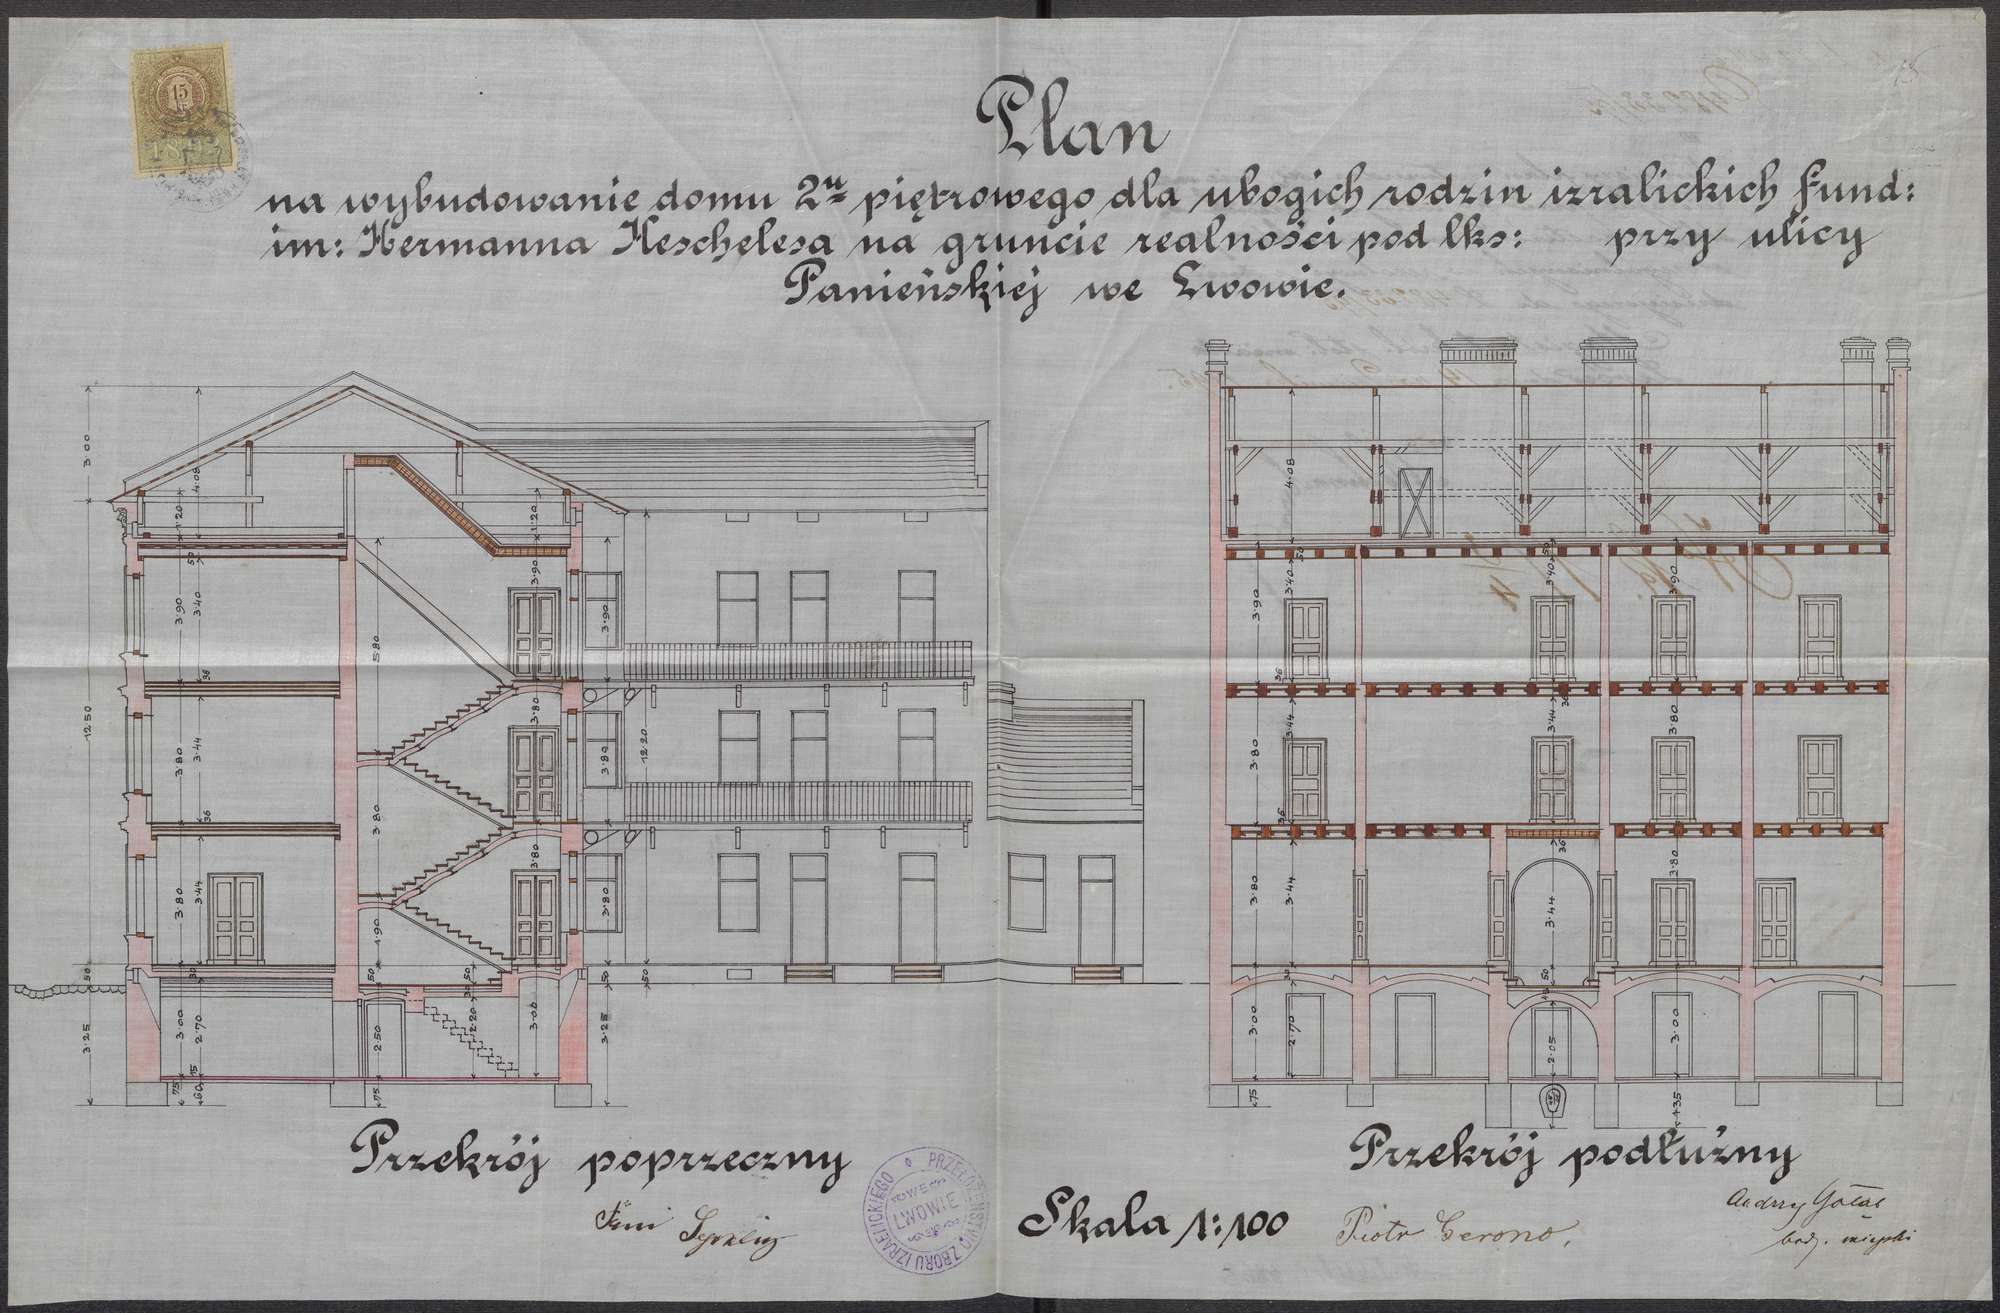 15
Plan
na wybudowanie domu 2u piętrowego dla ubogich rodzin izralickich fund:
im: Hermanna Heschelesa na gruncie realności pod lks: przy ulicy
Panieńskiej we Lwowie.
3·00
4·08
1·20
1·20
4·08
50
3·90
3·40
5·80
3·90
3·90
3·90
3·40
50
3·40
50
3·90
36
36
36
12·50
3·80
3·44
3·80
3·80
3·80
12·20
3·80
3·44
3·44
3·80
36
36
36
3·80
3·44
1·90
3·80
3·80
3·80
3·44
3·44
3·80
50
30
50
50
50
50
50
30
3·25
3·00
2·70
2·50
2·20
3·00
3·25
3·00
2·70
2·05
3·00
75
60
15
75
75
1·35
Przekrój poprzeczny
Przekrój podłużny
PRZEŁOŻEŃSTWO ZBORU IZRAELICKIEGO
WE
LWOWIE
Skala 1:100
Piotr Gerono,